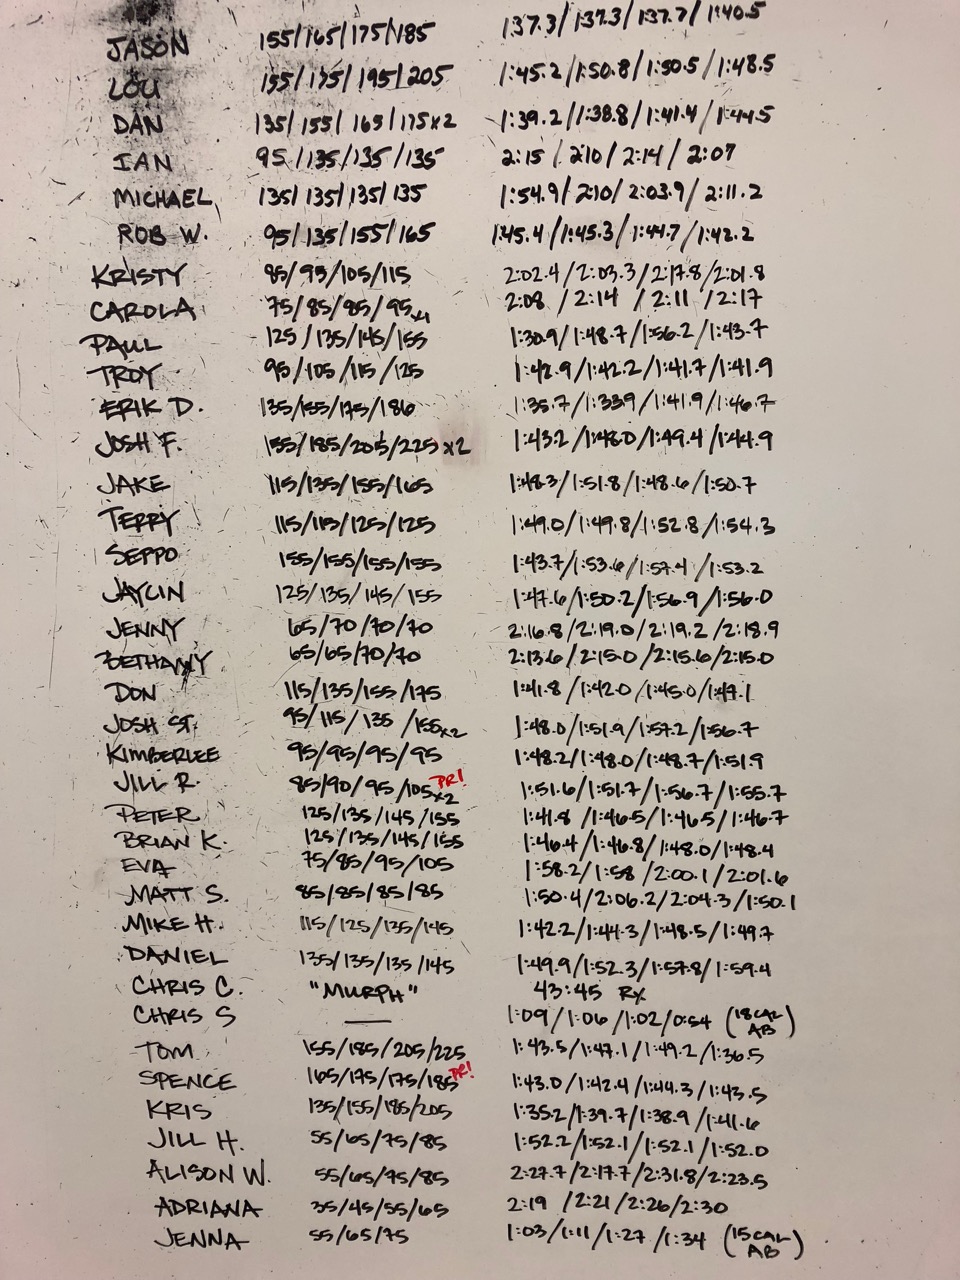 JASON 155/165/175/185 1:37.3/1:37.3/1:37.7/1:40.5
LOU 155/175/195/205 1:45.2/1:50.8/1:50.5/1:48.5
DAN 135/155/165/175x2 1:39.2/1:38.8/1:41.4/1:44.5
IAN 95/135/135/135 2:15/2:10/2:14/2:07
MICHAEL 135/135/135/135 1:54.9/2:10/2:03.9/2:11.2
ROB W. 95/135/155/165 1:45.4/1:45.3/1:44.7/1:42.2
KRISTY 85/95/105/115 2:02.4/2:03.3/2:17.8/2:01.8
CAROLA 75/85/85/95x4 2:08/2:14/2:11/2:17
PAUL 125/135/145/155 1:30.9/1:48.7/1:56.2/1:43.7
TROY 95/105/115/125 1:42.9/1:42.2/1:41.7/1:41.9
ERIK D. 135/155/175/186 1:35.7/1:33.9/1:41.9/1:46.7
JOSH F. 155/185/205/225x2 1:43.2/1:48.0/1:49.4/1:44.9
JAKE 115/135/155/165 1:48.3/1:51.8/1:48.6/1:50.7
TERRY 115/115/125/125 1:49.0/1:49.8/1:52.8/1:54.3
SEPPO 155/155/155/155 1:43.7/1:53.6/1:57.4/1:53.2
JAYLIN 125/135/145/155 1:47.6/1:50.2/1:56.9/1:56.0
JENNY 65/70/70/70 2:16.8/2:19.0/2:19.2/2:18.9
BETHANY 65/65/70/70 2:13.6/2:15.0/2:15.6/2:15.0
DON 115/135/155/175 1:41.8/1:42.0/1:45.0/1:47.1
JOSH ST. 95/115/135/155x2 1:48.0/1:51.9/1:57.2/1:56.7
KIMBERLEE 95/95/95/95 1:48.2/1:48.0/1:48.7/1:51.9
JILL R. 85/90/95/105x2 PR! 1:51.6/1:51.7/1:56.7/1:55.7
PETER 125/135/145/155 1:41.8/1:46.5/1:46.5/1:46.7
BRIAN K. 125/135/145/155 1:46.4/1:46.8/1:48.0/1:48.4
EVA 75/85/95/105 1:58.2/1:58/2:00.1/2:01.6
MATT S. 85/85/85/85 1:50.4/2:06.2/2:04.3/1:50.1
MIKE H. 115/125/135/145 1:42.2/1:44.3/1:48.5/1:49.7
DANIEL 135/135/135/145 1:49.9/1:52.3/1:57.8/1:59.4
CHRIS C. "MURPH" 43:45 RX
CHRIS S — 1:09/1:06/1:02/0:54 (18 CAL AB)
TOM 155/185/205/225 1:43.5/1:47.1/1:49.2/1:36.5
SPENCE 165/175/175/185 PR! 1:43.0/1:42.4/1:44.3/1:43.5
KRIS 135/155/185/205 1:35.2/1:39.7/1:38.9/1:41.6
JILL H. 55/65/75/85 1:52.2/1:52.1/1:52.1/1:52.0
ALISON W. 55/65/75/85 2:27.7/2:17.7/2:31.8/2:23.5
ADRIANA 35/45/55/65 2:19/2:21/2:26/2:30
JENNA 55/65/75 1:03/1:11/1:27/1:34 (15 CAL AB)